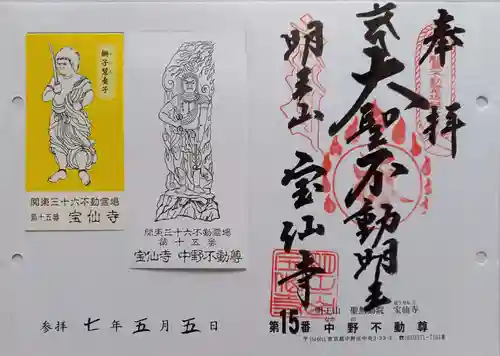 獅子慧童子
関東三十六不動霊場
第十五番 宝仙寺
関東三十六不動霊場
第十五番
宝仙寺 中野不動尊
参拝 七年五月五日
奉拝
大聖不動明王
明王山 宝仙寺
明王山 聖無動院 宝仙寺
第15番 中野不動尊
東京都中野区中央2-33-3